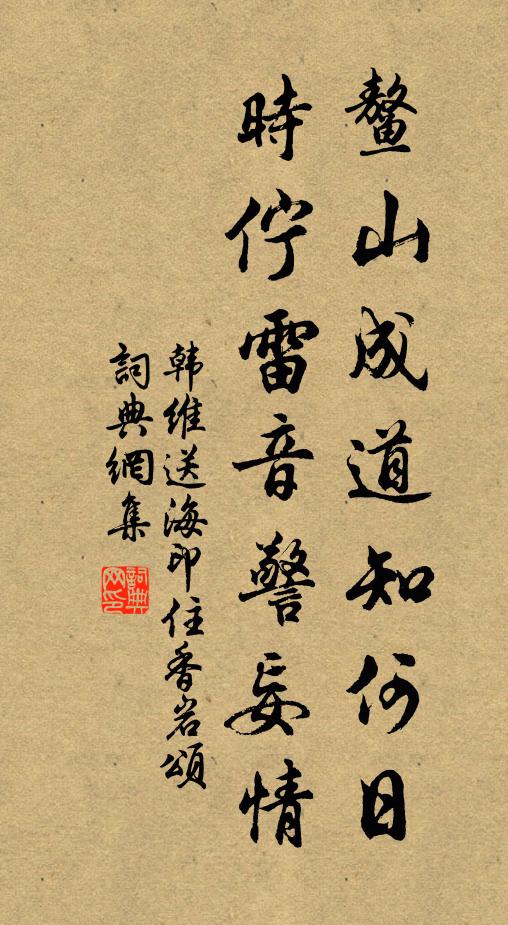 鳌山成道知何日
時佇雷音警妄情
韩維送海印住香岩頌
詞典網集
詞典网印